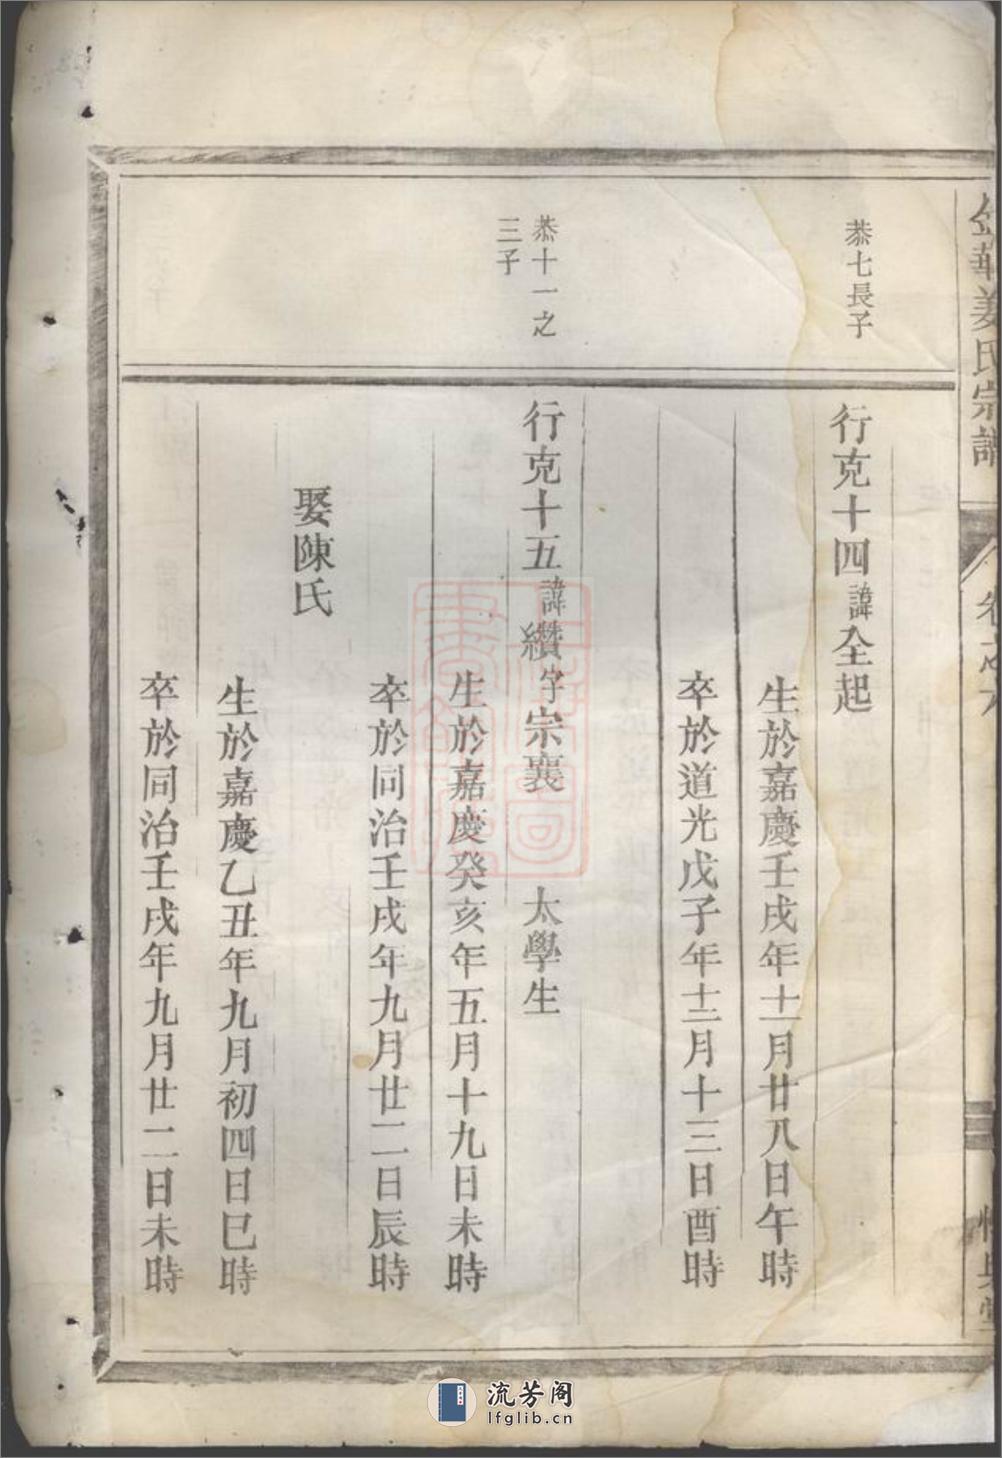 金華姜氏宗譜
卷之六
恭七長子
行克十四諱全起
生於嘉慶壬戌年十一月廿八日午時
卒於道光戊子年十二月十三日酉時
恭十一之
三子
行克十五諱纘字宗襄 太學生
生於嘉慶癸亥年五月十九日未時
卒於同治壬戌年九月廿二日辰時
娶陳氏
生於嘉慶乙丑年九月初四日巳時
卒於同治壬戌年九月廿二日未時
流芳阁
lfglib.cn